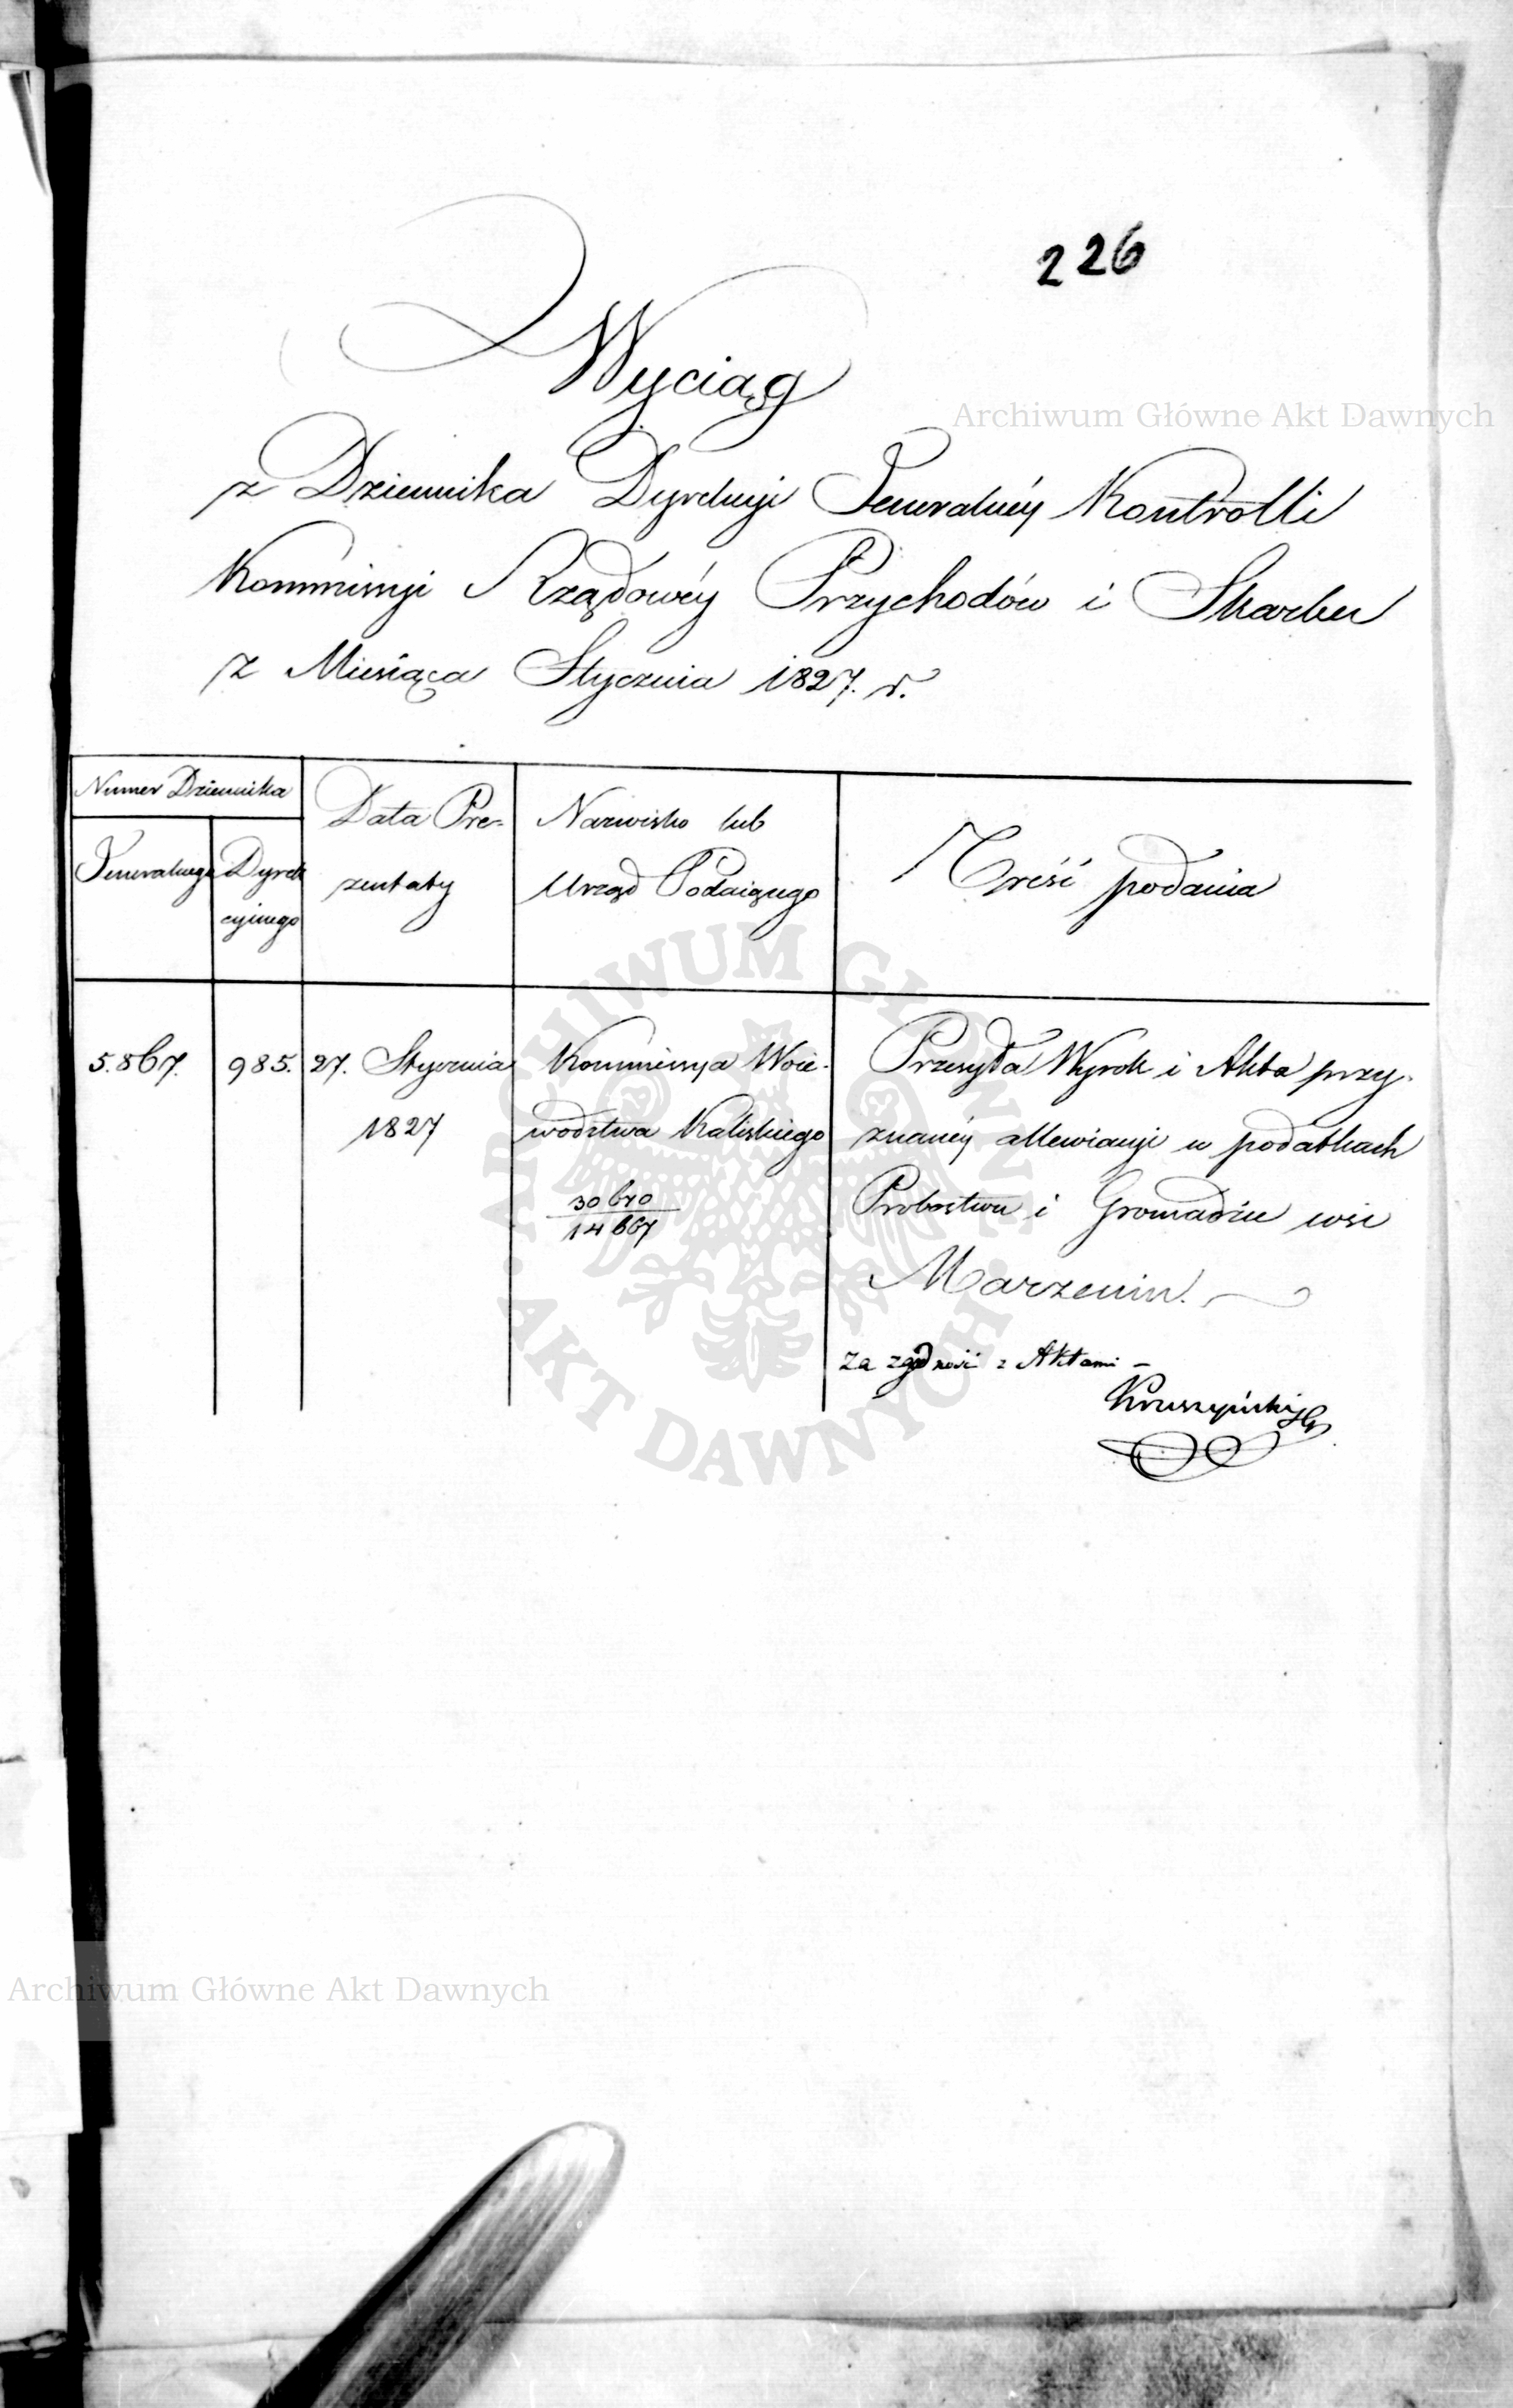 226
Wyciąg
z Dziennika Dyrekcyi Jeneralnéy Kontrolli
Kommissyi Rządowéy Przychodów i Skarbu
z Miesiąca Stycznia 1827. r.
Numer Dziennika
Jeneralnego
Dyrek
cyinego
Data Pre-
zentaty
Nazwisko lub
Urząd Podaiącego
Treść podania
5.867.
985.
27. Stycznia
1827
Kommissya Woie-
wodztwa Kaliskiego
14667
Przesyła Wyrok i Akta przy-
znanéy allewiacyi w podatkach
Probostwu i Gromadzie wsi
Marzenin.
Za zgodność z Aktami -
Archiwum Główne Akt Dawnych
ARCHIWUM GŁÓWNE AKT DAWNYCH
Archiwum Główne Akt Dawnych